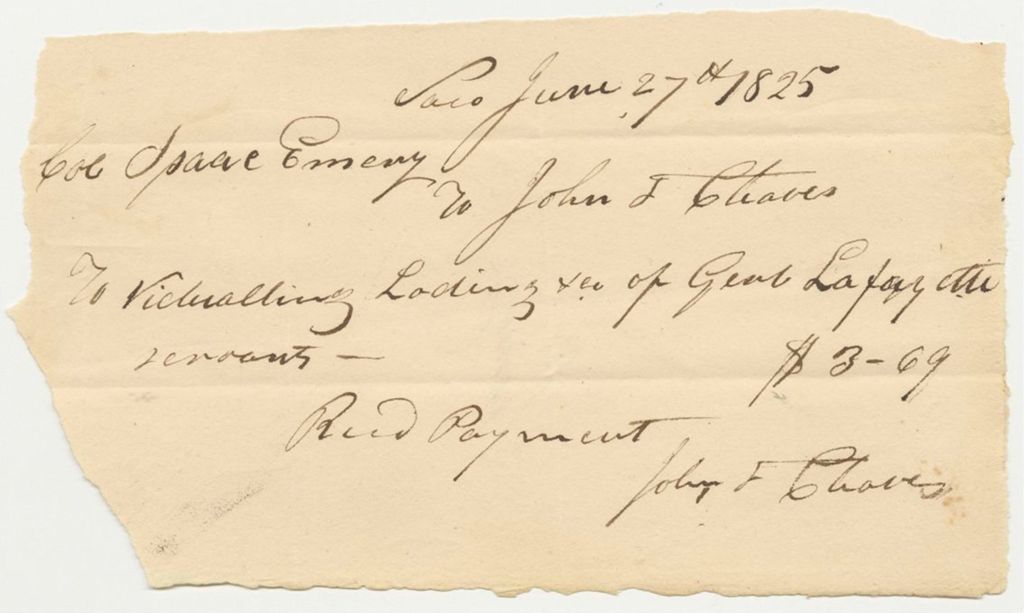 Saco June 27th 1825
Col Isaac Emery
To John F Cleaves
To Victualling Lodeing &c of Genl Lafayette
servants — $ 3-69
Recd Payment
John F Cleaves